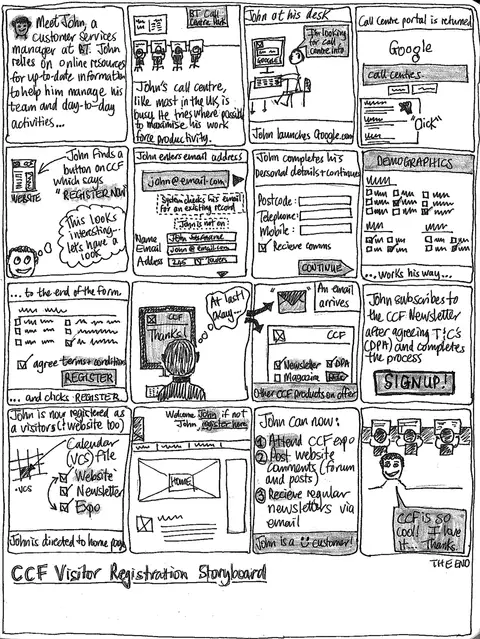 Meet John, a
customer services
manager at BT. John
relies on online resources
for up-to-date information
to help him manage his
team and day-to-day
activities...
BT Call
Centre Park
John's call centre,
like most in the UK is
busy. He tries where possible
to maximise his work
force productivity.
John at his desk
I'm looking for
call
centre info
GOOGLE
John launches Google.com
Call Centre portal is returned
Google
call centres
"Click"
WEBSITE
John finds a
button on CCF
which says
"REGISTER NOW"
This looks
interesting...
let's have a
look
John enters email address
john@email.com
System checks his email
for an existing record
John is not on
Name
Email John@email.com
Address
John completes his
personal details + continues
Postcode:
Telephone:
Mobile:
Recieve comms
CONTINUE
DEMOGRAPHICS
...works his way...
...to the end of the form.
agree terms + conditions
REGISTER
...and clicks REGISTER
CCF
Thanks!
At last!
Okay...
An email
arrives
CCF
Newsletter
DPA
Magazine
Other CCF products on offer
John subscribes to
the CCF Newsletter
after agreeing T&C's
(DPA) and completes
the process
SIGNUP!
John is now registered as
a visitor (+ website too)
Calendar
(VCS) file
.vcs
Website
Newsletter
Expo
John is directed to home page
Welcome John if not
John, register here
HOME
John can now:
1 Attend CCF expo
2 Post website
comments (forum
and posts)
3 Recieve regular
newsletters via
email
John is a customer!
CCF is so
cool! I love
it... Thanks.
THE END
CCF Visitor Registration Storyboard